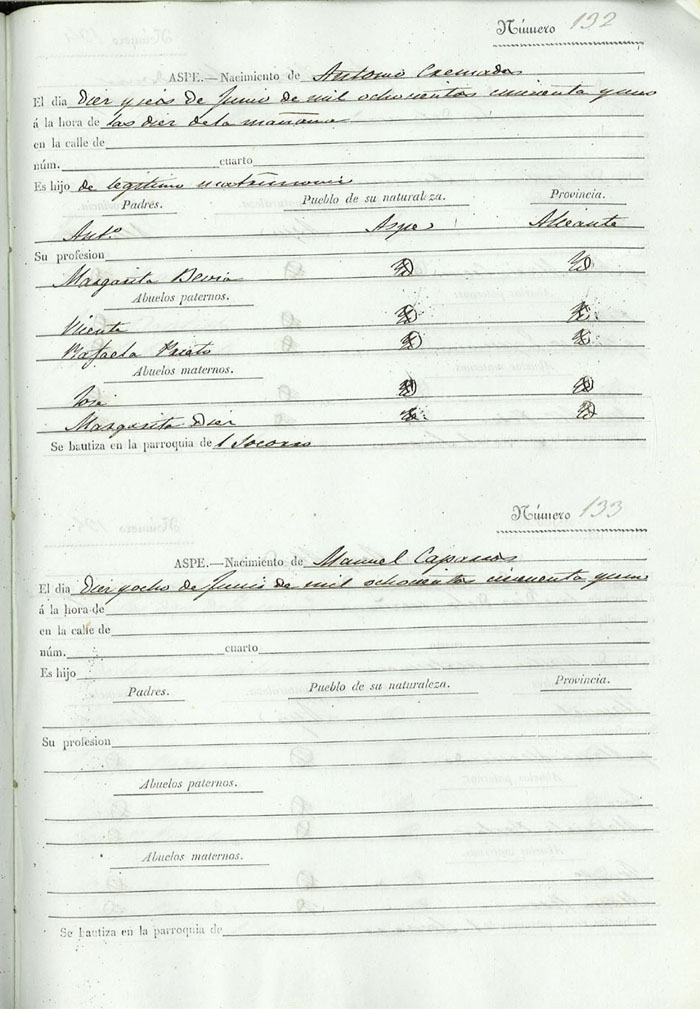 Número 132
ASPE.—Nacimiento de Antonio Cremades
El dia Diez y seis de Junio de mil ochocientos cincuenta y uno
á la hora de las diez de la mañana
en la calle de
núm. cuarto
Es hijo de legitimo matrimonio
Padres. Pueblo de su naturaleza. Provincia.
Ant.º Aspe Alicante
Su profesion
Margarita Bevia Yd Yd
Abuelos paternos.
Vicente Yd Yd.
Rafaela Prieto Yd Yd
Abuelos maternos.
José Yd Yd
Margarita Diez Yd. Yd
Se bautiza en la parroquia de l Socorro
Número 133
ASPE.—Nacimiento de Manuel Caparros
El dia Diez y ocho de Junio de mil ochocientos cincuenta y uno
á la hora de
en la calle de
núm. cuarto
Es hijo
Padres. Pueblo de su naturaleza. Provincia.
Su profesion
Abuelos paternos.
Abuelos maternos.
Se bautiza en la parroquia de